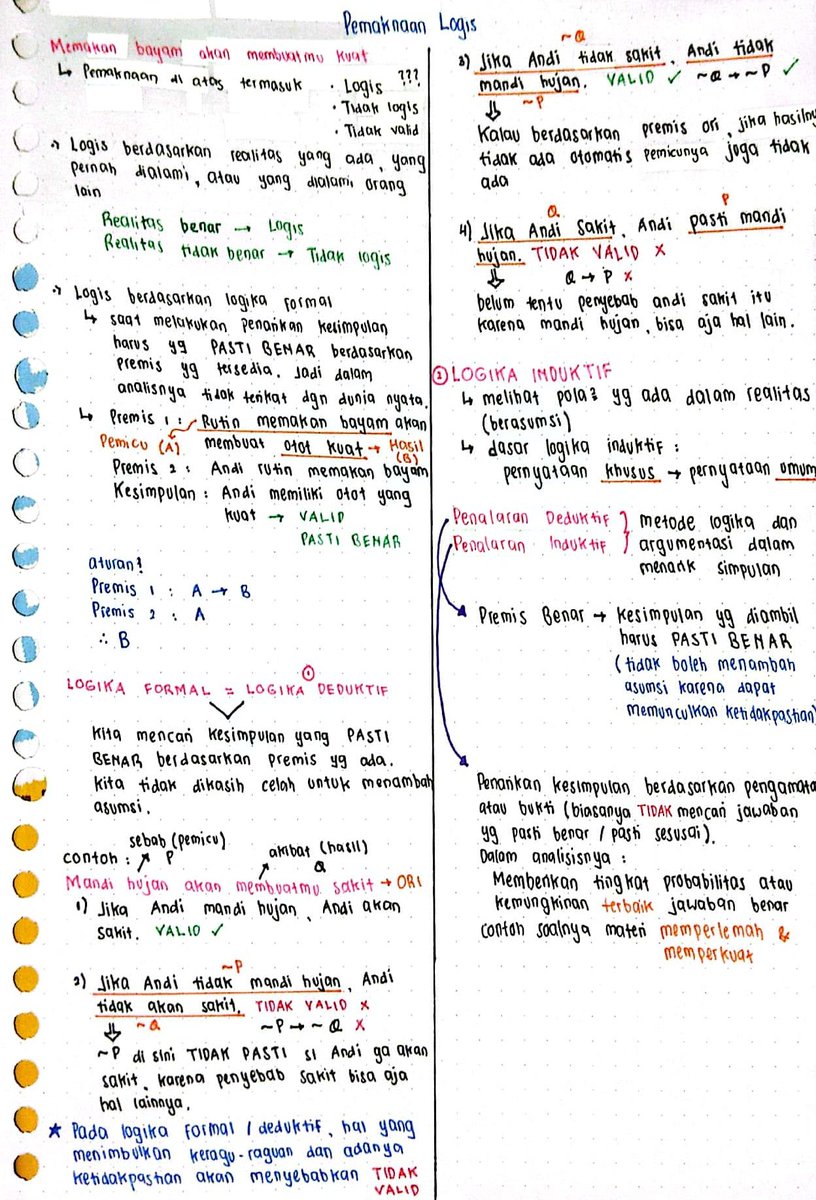 Pemaknaan Logis
Memakan bayam akan membuatmu kuat
↳ Pemaknaan di atas termasuk · Logis ???
· Tidak logis
· Tidak valid
Logis berdasarkan realitas yang ada, yang
pernah dialami, atau yang dialami orang
lain
Realitas benar → Logis
Realitas tidak benar → Tidak logis
Logis berdasarkan logika formal
↳ saat melakukan penarikan kesimpulan
harus yg PASTI BENAR berdasarkan
premis yg tersedia. Jadi dalam
analisnya tidak terikat dgn dunia nyata.
↳ Premis 1 : Rutin memakan bayam akan
Pemicu (A) membuat otot kuat → Hasil
(B)
Premis 2 : Andi rutin memakan bayam
Kesimpulan : Andi memiliki otot yang
kuat → VALID
PASTI BENAR
aturan!
Premis 1 : A → B
Premis 2 : A
∴ B
①
LOGIKA FORMAL = LOGIKA DEDUKTIF
Kita mencari kesimpulan yang PASTI
BENAR berdasarkan premis yg ada.
kita tidak dikasih celah untuk menambah
asumsi.
sebab (pemicu)
akibat (hasil)
contoh : P
Q
Mandi hujan akan membuatmu sakit → ORI
1) Jika Andi mandi hujan, Andi akan
sakit. VALID ✓
~P
2) Jika Andi tidak mandi hujan, Andi
tidak akan sakit. TIDAK VALID X
~Q ~P → ~Q X
~P di sini TIDAK PASTI si Andi ga akan
sakit, karena penyebab sakit bisa aja
hal lainnya.
★ Pada logika formal / deduktif, hal yang
menimbulkan keragu-raguan dan adanya
ketidakpastian akan menyebabkan TIDAK
VALID
~Q
3) Jika Andi tidak sakit, Andi tidak
mandi hujan. VALID ✓ ~Q → ~P ✓
~P
Kalau berdasarkan premis ori, jika hasilny
tidak ada otomatis pemicunya juga tidak
ada
Q P
4) Jika Andi sakit, Andi pasti mandi
hujan. TIDAK VALID X
Q → P X
belum tentu penyebab andi sakit itu
karena mandi hujan, bisa aja hal lain.
② LOGIKA INDUKTIF
↳ melihat pola² yg ada dalam realitas
(berasumsi)
↳ dasar logika induktif :
pernyataan khusus → pernyataan umum
Penalaran Deduktif } metode logika dan
Penalaran Induktif } argumentasi dalam
menarik simpulan
Premis Benar → kesimpulan yg diambil
harus PASTI BENAR
(tidak boleh menambah
asumsi karena dapat
memunculkan ketidakpastian)
Penarikan kesimpulan berdasarkan pengamata
atau bukti (biasanya TIDAK mencari jawaban
yg pasti benar / pasti sesusai).
Dalam analisisnya :
Memberikan tingkat probabilitas atau
kemungkinan terbaik jawaban benar
contoh soalnya materi memperlemah &
memperkuat